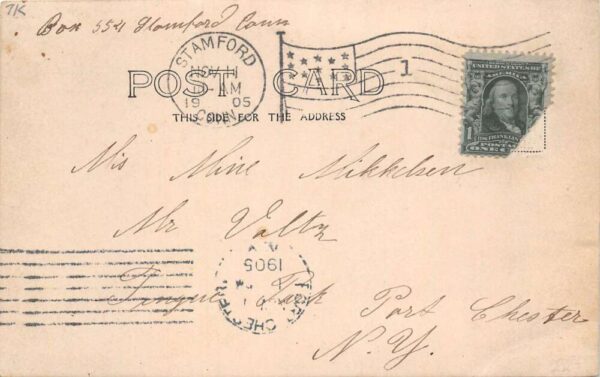 7K
Box 554 Stamford Conn
STAMFORD
NOV 11
AM
1905
CONN.
1
POST CARD
THIS SIDE FOR THE ADDRESS
UNITED STATES OF
AMERICA
FRANKLIN
POSTAGE
1 ONE
Mis Mine Mikkelsen
Mr Valtz
1905
Park Port Chester
N.Y.
CHESTER